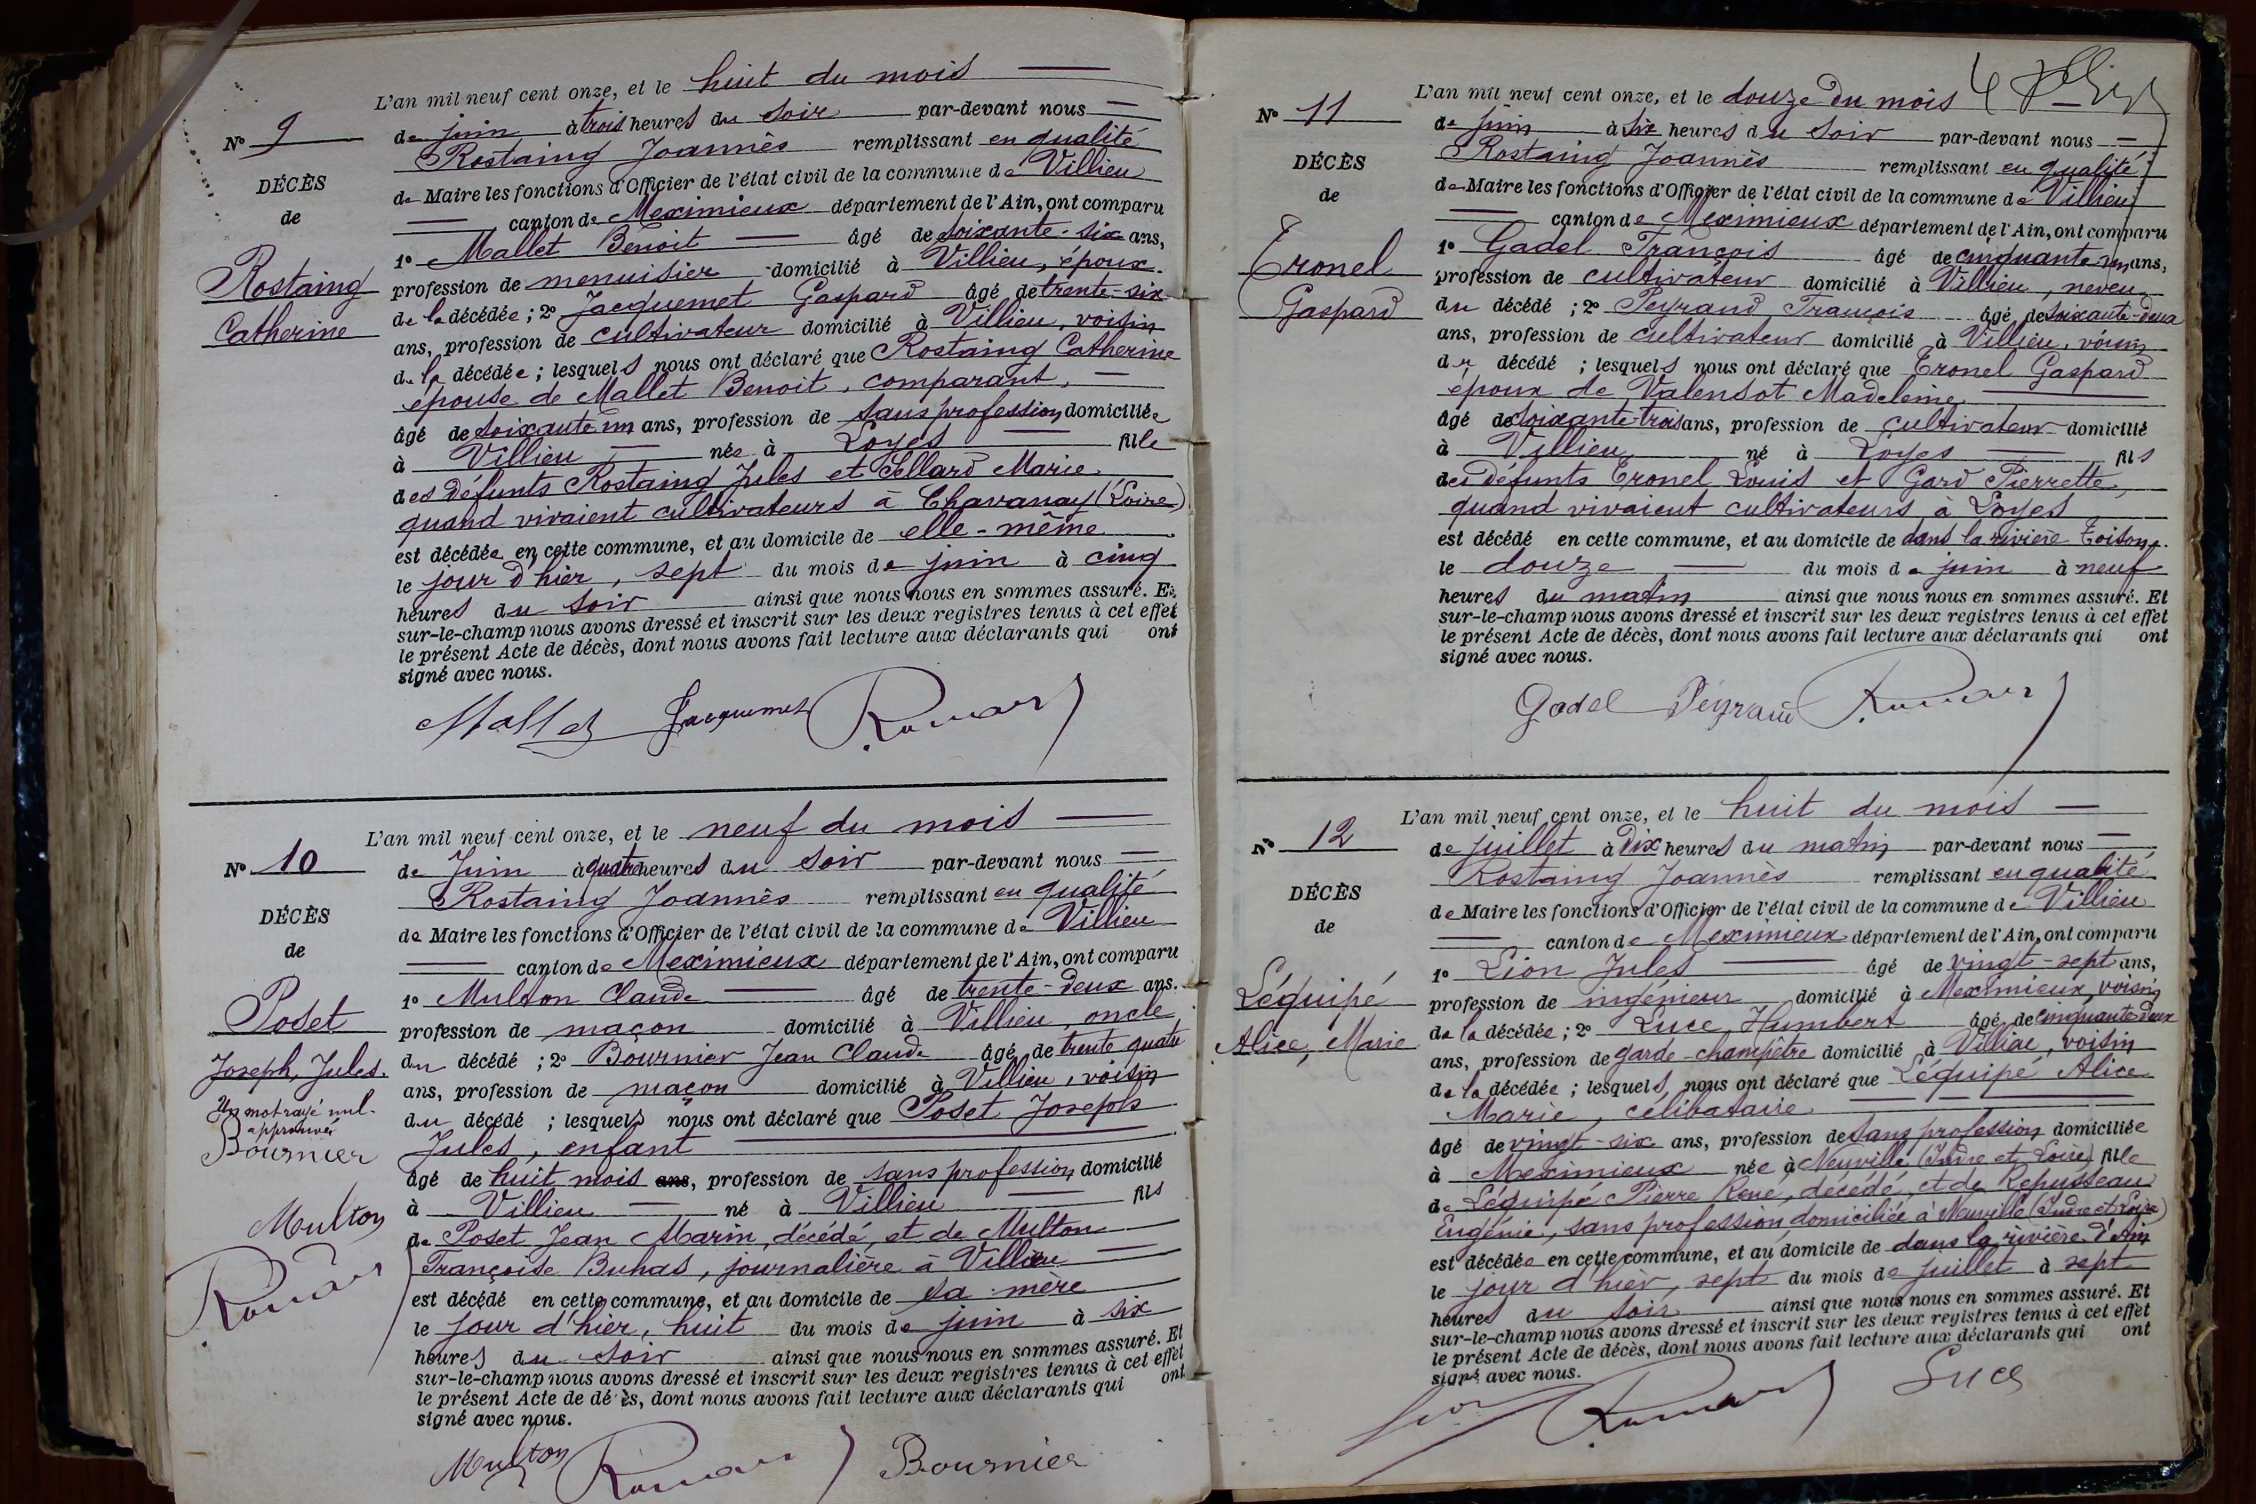 L'an mil neuf cent onze, et le huit du mois
de juin à trois heures du soir par-devant nous
Rostaing Joannès remplissant en qualité
de Maire les fonctions d'Officier de l'état civil de la commune de Villieu
canton de Meximieux département de l'Ain, ont comparu
1º Mallet Benoit âgé de soixante-six ans,
profession de menuisier domicilié à Villieu, époux
de la décédée ; 2º Jacquemet Gaspard âgé de trente-six
ans, profession de cultivateur domicilié à Villieu, voisin
de la décédée ; lesquels nous ont déclaré que Rostaing Catherine
épouse de Mallet Benoit, comparant,
âgé de soixante un ans, profession de sans profession domiciliée
à Villieu née à Loyes fille
des défunts Rostaing Jules et Sellard Marie
quand vivaient cultivateurs à Chavanay (Loire)
est décédée en cette commune, et au domicile de elle-même
le jour d'hier, sept du mois de juin à cinq
heures du soir ainsi que nous nous en sommes assuré. Et
sur-le-champ nous avons dressé et inscrit sur les deux registres tenus à cet effet
le présent Acte de décès, dont nous avons fait lecture aux déclarants qui ont
signé avec nous.
Mallet Jacquemet
Nº 9
DÉCÈS
de
Rostaing
Catherine
L'an mil neuf cent onze, et le neuf du mois
de Juin à quatre heures du soir par-devant nous
Rostaing Joannès remplissant en qualité
de Maire les fonctions d'Officier de l'état civil de la commune de Villieu
canton de Meximieux département de l'Ain, ont comparu
1º Multon Claude âgé de trente-deux ans.
profession de maçon domicilié à Villieu, oncle
du décédé ; 2º Bournier Jean Claude âgé de trente quatre
ans, profession de maçon domicilié à Villieu, voisin
du décédé ; lesquels nous ont déclaré que Poset Joseph
Jules, enfant
âgé de huit mois ans, profession de sans profession domicilié
à Villieu né à Villieu fils
de Poset Jean Marin, décédé, et de Multon
Françoise Buhas, journalière à Villieu
est décédé en cette commune, et au domicile de sa mère
le jour d'hier, huit du mois de juin à six
heures du soir ainsi que nous nous en sommes assuré. Et
sur-le-champ nous avons dressé et inscrit sur les deux registres tenus à cet effet
le présent Acte de décès, dont nous avons fait lecture aux déclarants qui ont
signé avec nous.
Multon Bournier
Nº 10
DÉCÈS
de
Poset
Joseph, Jules.
Un mot rayé nul.
approuvé
Bournier
Multon
L'an mil neuf cent onze, et le douze du mois
de juin à six heures du soir par-devant nous
Rostaing Joannès remplissant en qualité
de Maire les fonctions d'Officier de l'état civil de la commune de Villieu
canton de Meximieux département de l'Ain, ont comparu
1º Gadel François âgé de cinquante-un ans,
profession de cultivateur domicilié à Villieu, neveu
du décédé ; 2º Peyraud François âgé de soixante-deux
ans, profession de cultivateur domicilié à Villieu, voisin
du décédé ; lesquels nous ont déclaré que Tronel Gaspard
époux de Valensot Madeleine
âgé de soixante-trois ans, profession de cultivateur domicilié
à Villieu né à Loyes fils
des défunts Tronel Louis et Gard Pierrette,
quand vivaient cultivateurs à Loyes
est décédé en cette commune, et au domicile de dans la rivière Toison.
le douze du mois de juin à neuf
heures du matin ainsi que nous nous en sommes assuré. Et
sur-le-champ nous avons dressé et inscrit sur les deux registres tenus à cet effet
le présent Acte de décès, dont nous avons fait lecture aux déclarants qui ont
signé avec nous.
Gadel Peyraud
Nº 11
DÉCÈS
de
Tronel
Gaspard
L'an mil neuf cent onze, et le huit du mois
de juillet à Dix heures du matin par-devant nous
Rostaing Joannès remplissant en qualité
de Maire les fonctions d'Officier de l'état civil de la commune de Villieu
canton de Meximieux département de l'Ain, ont comparu
1º Lion Jules âgé de vingt-sept ans,
profession de ingénieur domicilié à Meximieux, voisin
de la décédée ; 2º Luce Humbert âgé de cinquante deux
ans, profession de garde-champêtre domicilié à Villieu, voisin
de la décédée ; lesquels nous ont déclaré que Léquipé Alice
Marie, célibataire
âgé de vingt-six ans, profession de sans profession domiciliée
à Meximieux née à Neuville (Indre et Loire) fille
de Léquipé Pierre René, décédé, et de Repusseau
Eugénie, sans profession, domiciliée à Neuville (Indre et Loire)
est décédée en cette commune, et au domicile de dans la rivière d'Ain
le jour d'hier, sept du mois de juillet à sept
heures du soir ainsi que nous nous en sommes assuré. Et
sur-le-champ nous avons dressé et inscrit sur les deux registres tenus à cet effet
le présent Acte de décès, dont nous avons fait lecture aux déclarants qui ont
signé avec nous.
Luce
Nº 12
DÉCÈS
de
Léquipé
Alice, Marie